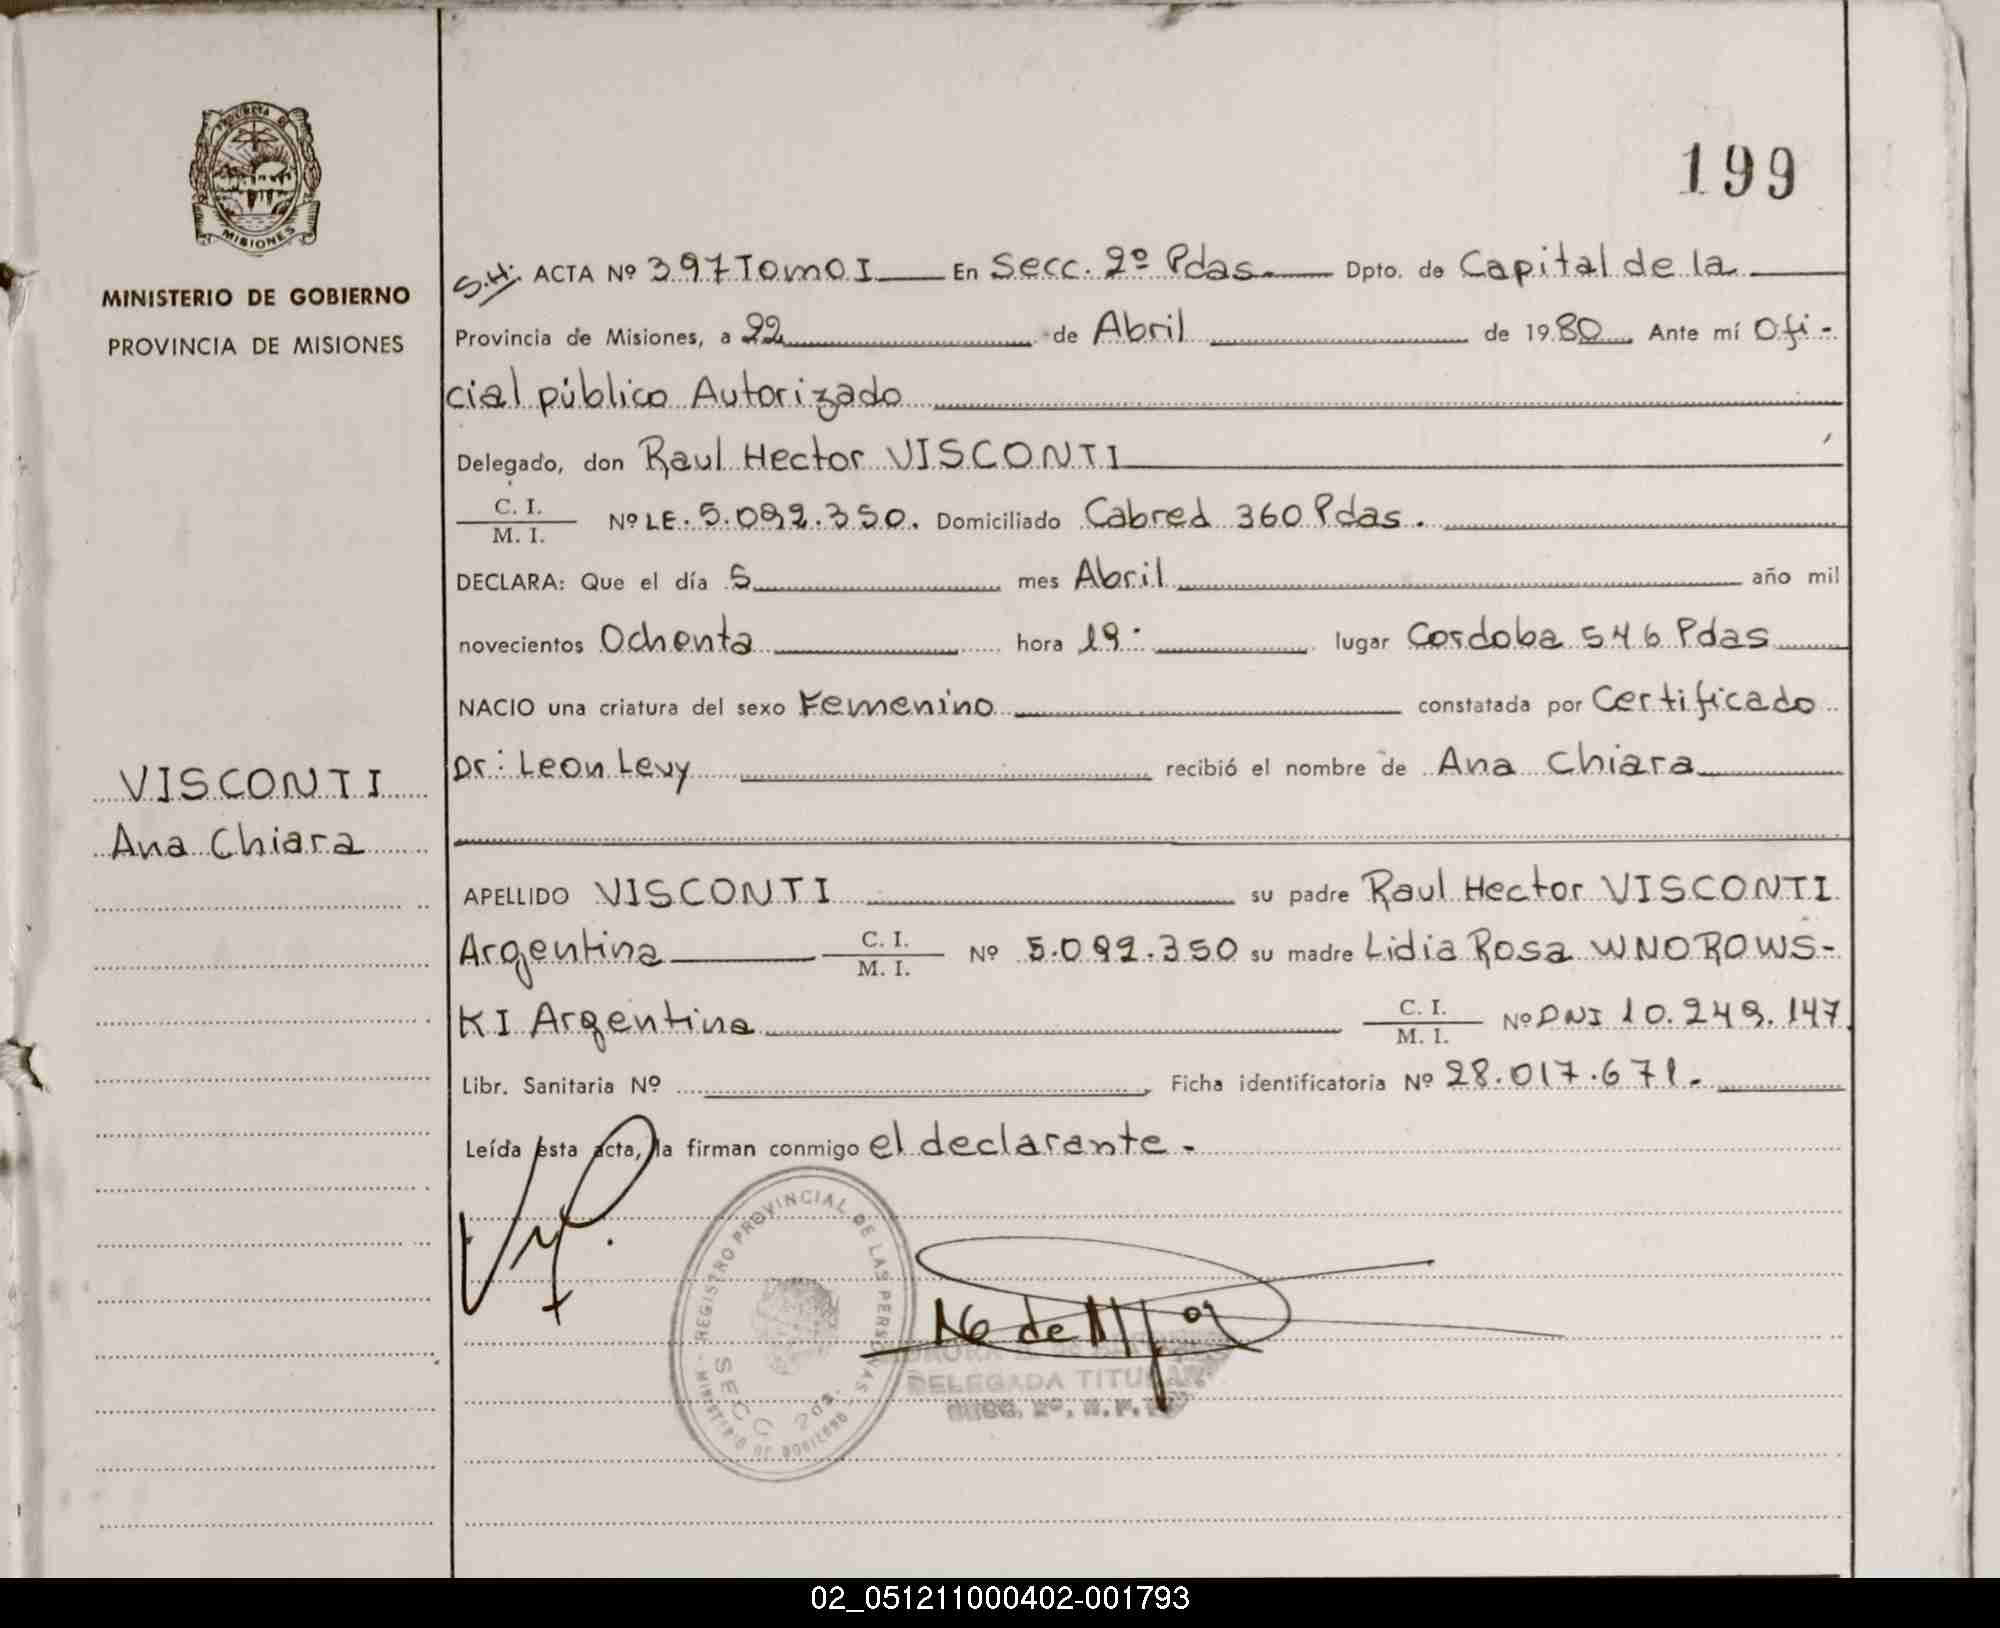 PROVINCIA DE
MISIONES
MINISTERIO DE GOBIERNO
PROVINCIA DE MISIONES
VISCONTI
Ana Chiara
199
S.H. ACTA Nº 397 Tomo I En Secc. 2º Pdas. Dpto. de Capital de la
Provincia de Misiones, a 22 de Abril de 1980 Ante mí Ofi-
cial público Autorizado
Delegado, don Raul Hector VISCONTI
C. I.
M. I. Nº LE. 5.092.350. Domiciliado Cabred 360 Pdas.
DECLARA: Que el día 5 mes Abril año mil
novecientos Ochenta hora 19: lugar Cordoba 546 Pdas
NACIO una criatura del sexo Femenino constatada por Certificado
Dr: Leon Levy recibió el nombre de Ana Chiara
APELLIDO VISCONTI su padre Raul Hector VISCONTI
Argentina C. I. M. I. Nº 5.092.350 su madre Lidia Rosa WNOROWS-
KI Argentina C. I. M. I. Nº DNI 10.249.147
Libr. Sanitaria Nº Ficha identificatoria Nº 28.017.671.-
Leída esta acta, la firman conmigo el declarante.-
REGISTRO PROVINCIAL DE LAS PERSONAS
MINISTERIO DE GOBIERNO
SECC 2da.
DELEGADA TITULAR
02_051211000402-001793